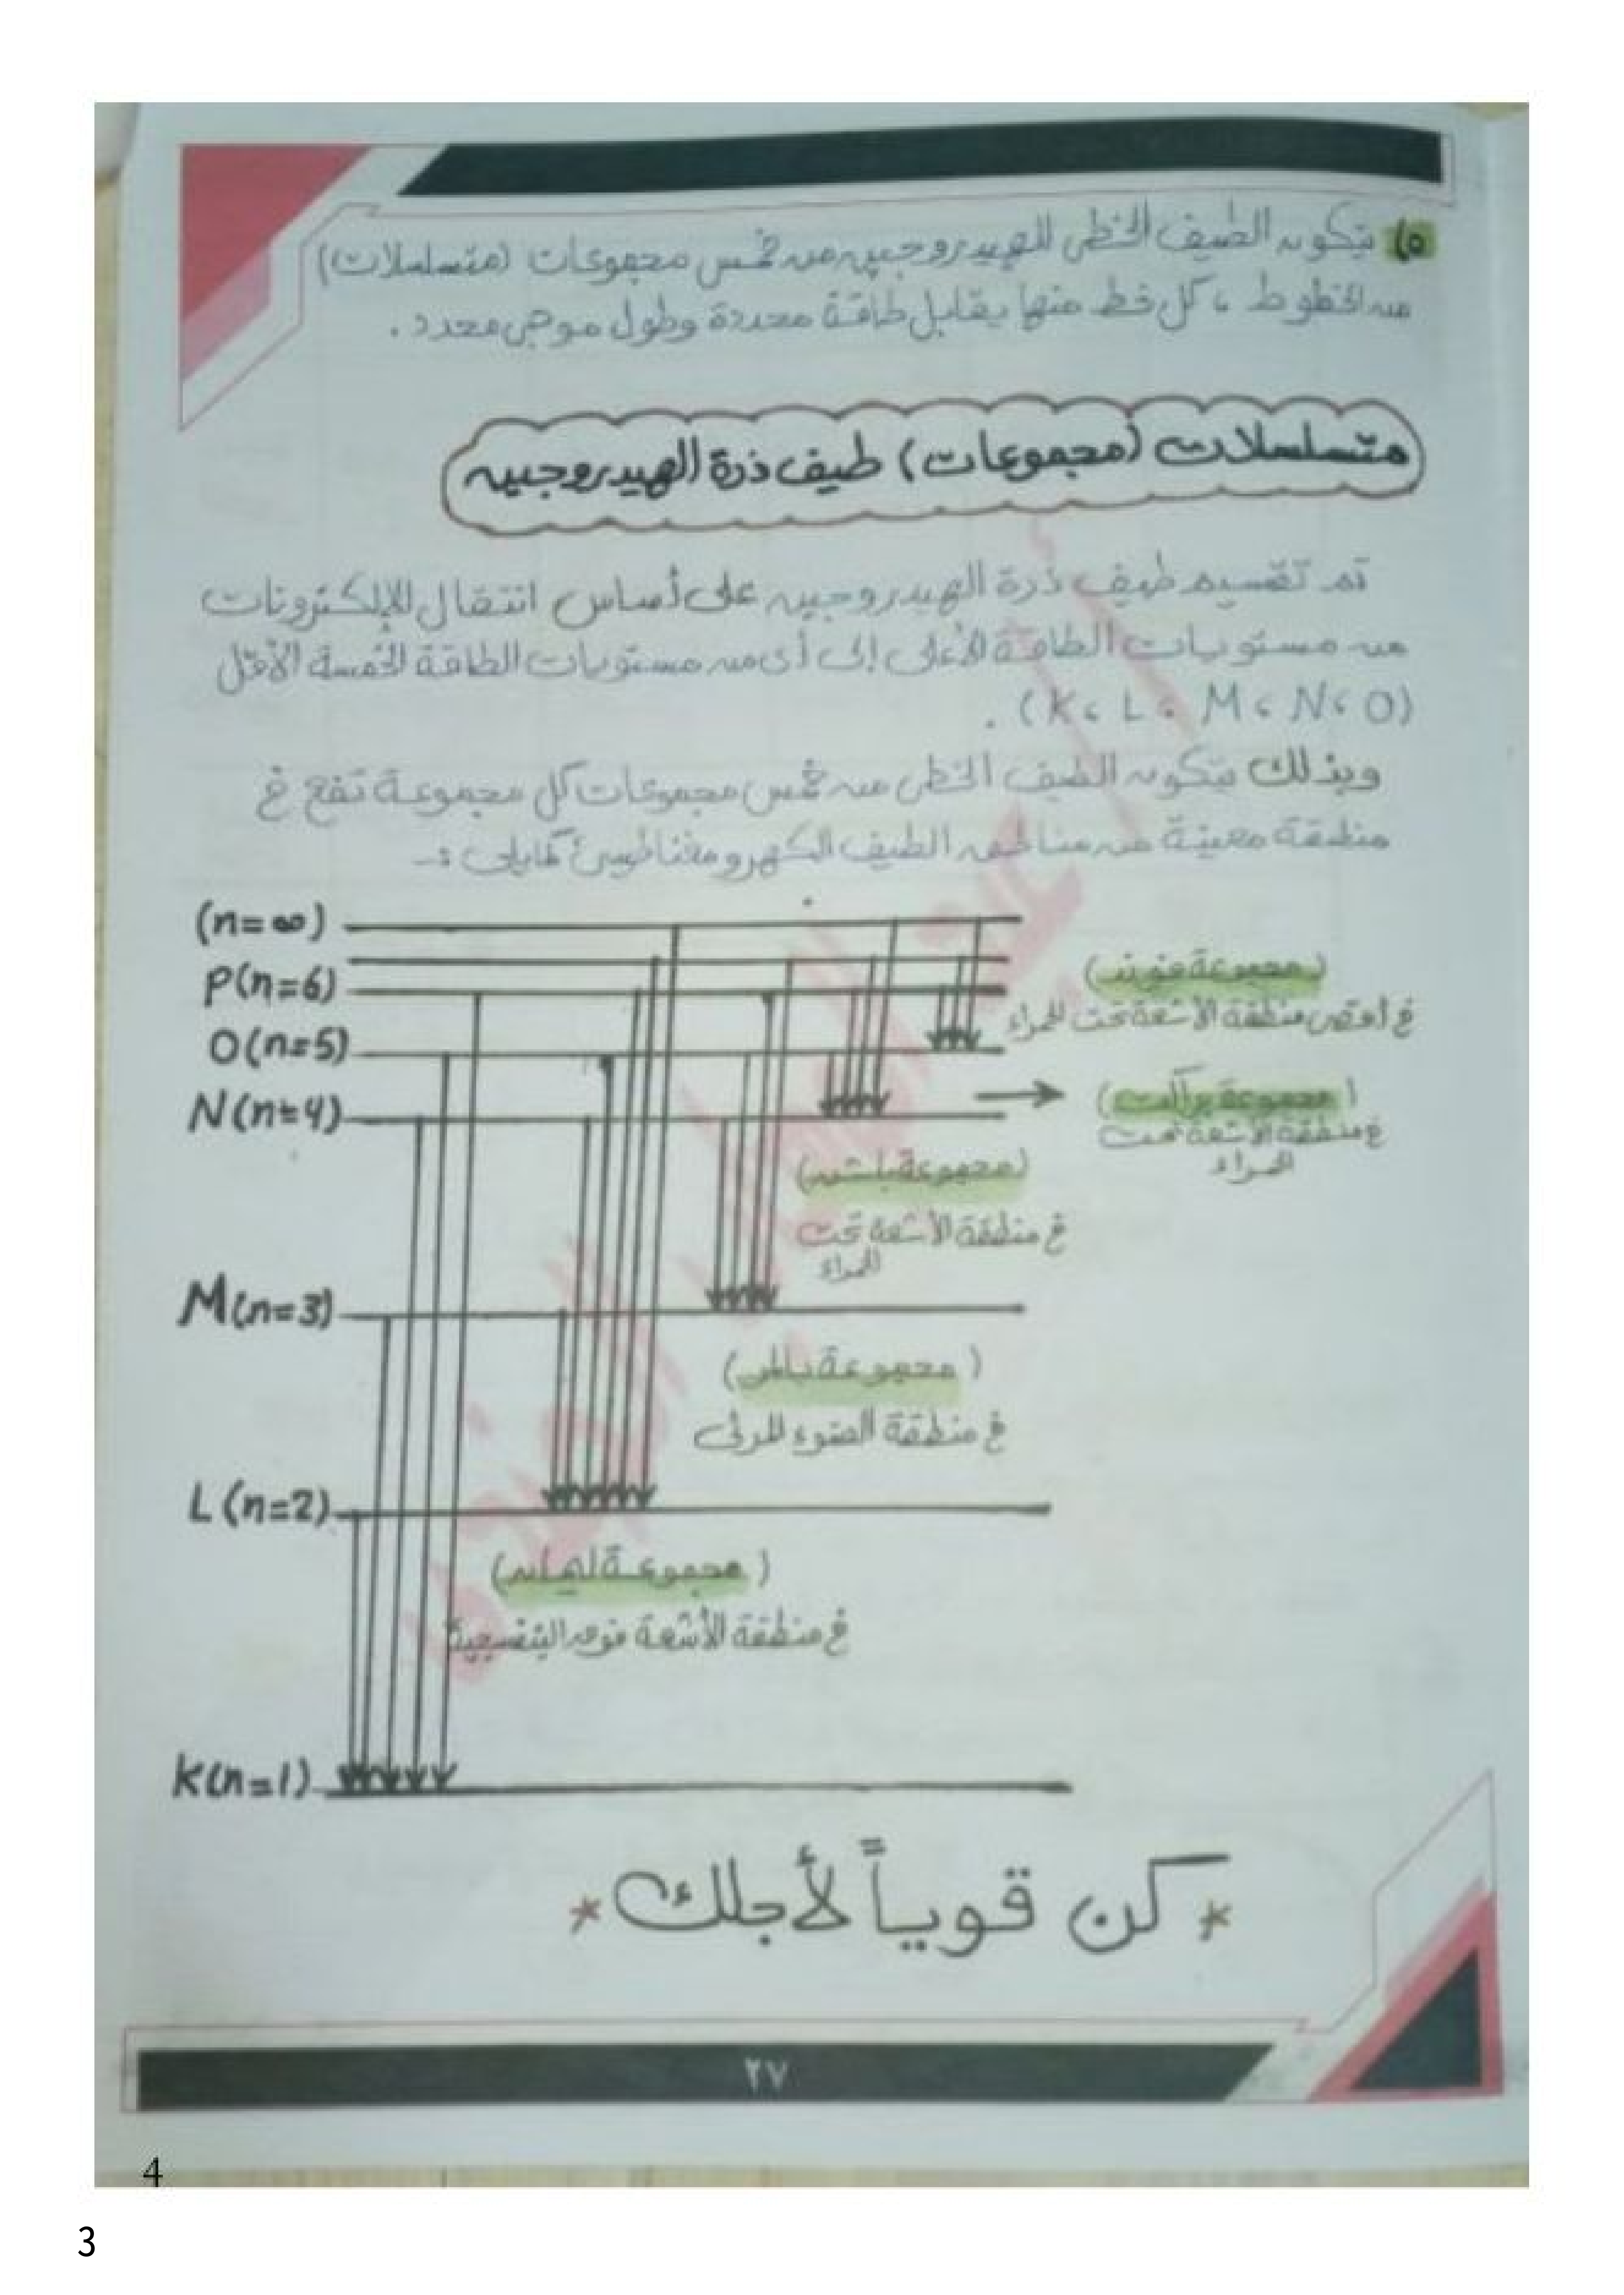 ٥) يتكون الطيف الخطى للهيدروجين من خمس مجموعات (متسلسلات)
من الخطوط ، كل خط منها يقابل طاقة محددة وطول موجى محدد .
متسلسلات (مجموعات) طيف ذرة الهيدروجين
تم تقسيم طيف ذرة الهيدروجين على أساس انتقال الإلكترونات
من مستويات الطاقة الأعلى إلى أى من مستويات الطاقة الخمسة الأقل
(K، L، M، N، O) .
وبذلك يتكون الطيف الخطى من خمس مجموعات كل مجموعة تقع فى
منطقة معينة من مناطق الطيف الكهرومغناطيسى كمايلى :-
(n=∞)
P(n=6)
(مجموعة فوند)
فى أقصى منطقة الأشعة تحت الحمراء
O(n=5)
N(n=4)
(مجموعة براكت)
فى منطقة الأشعة تحت
الحمراء
(مجموعة باشن)
فى منطقة الأشعة تحت
الحمراء
M(n=3)
(مجموعة بالمر)
فى منطقة الضوء المرئى
L(n=2)
(مجموعة ليمان)
فى منطقة الأشعة فوق البنفسجية
K(n=1)
* كن قوياً لأجلك *
٢٧
4
3